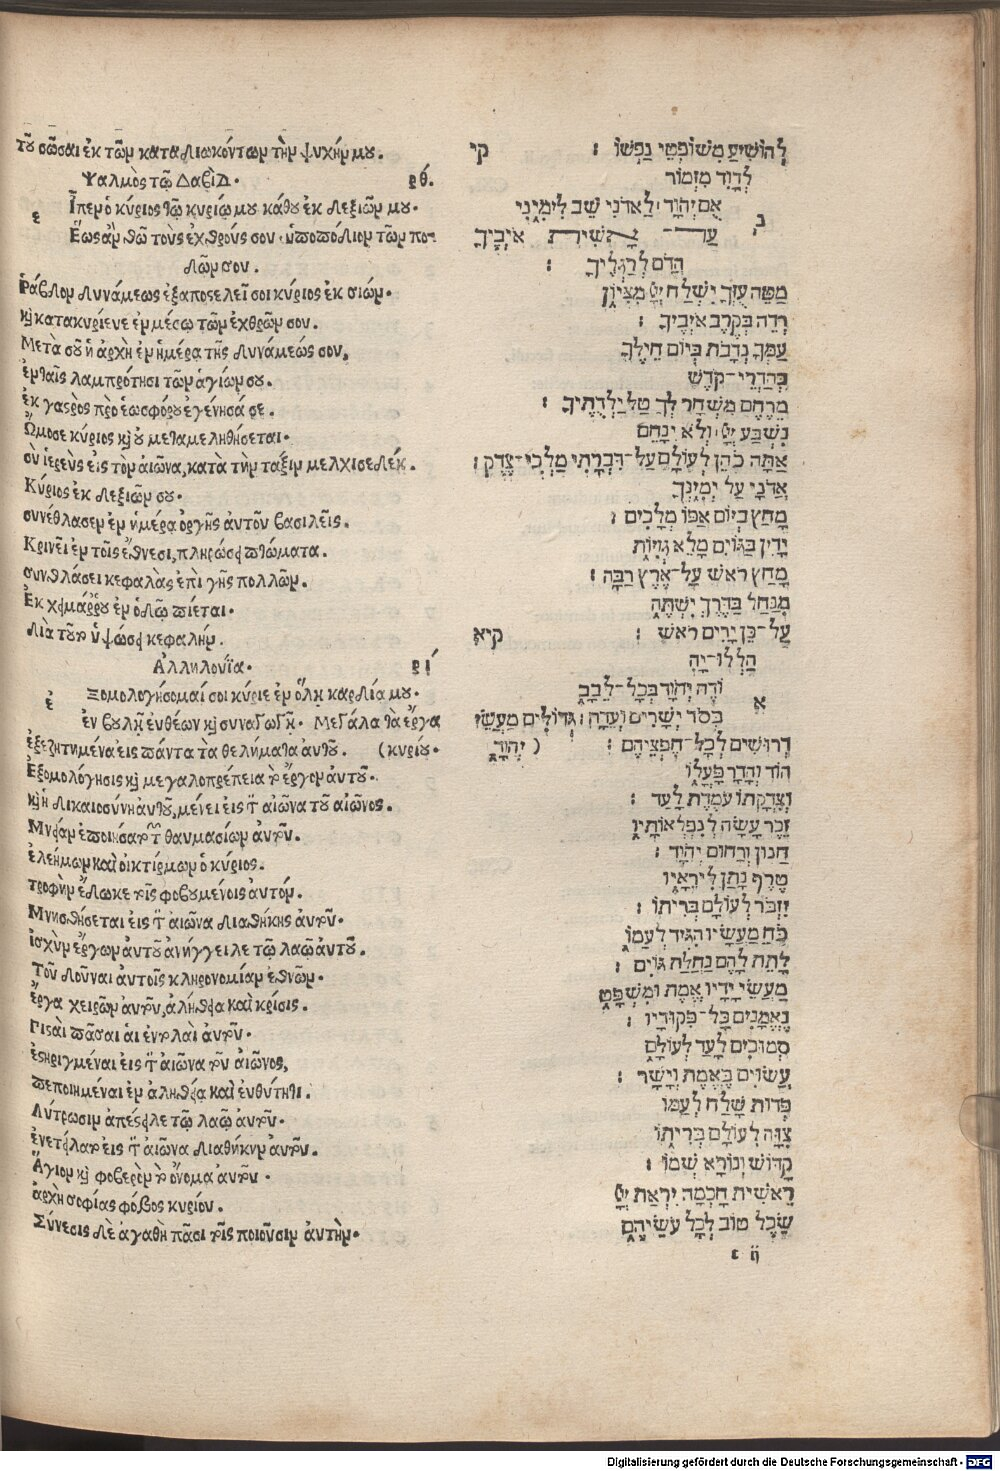 τȣ͂ σῶσαι ἐκ τῶν καταδιωκόντων τὴν ψυχήν μου.
Ψαλμὸς τῷ Δαβίδ. ρθ.
Ἶπεν ὁ κύριος τῷ κυρίῳ μου κάθου ἐκ δεξιῶν μου.
ε
Ἕως ἂν θῶ τοὺς ἐχθρούς σου ὑποπόδιον τῶν πο-
δῶν σου.
Ῥάβδον δυνάμεως ἐξαποστελεῖ σοι κύριος ἐκ σιών.
καὶ κατακυρίευε ἐν μέσῳ τῶν ἐχθρῶν σου.
Μετὰ σοῦ ἡ ἀρχὴ ἐν ἡμέρᾳ τῆς δυνάμεώς σου,
ἐν ταῖς λαμπρότησι τῶν ἁγίων σου.
ἐκ γαστρὸς πρὸ ἑωσφόρου ἐγέννησά σε.
Ὤμοσε κύριος καὶ οὐ μεταμεληθήσεται.
σὺ ἱερεὺς εἰς τὸν αἰῶνα, κατὰ τὴν τάξιν μελχισεδέκ.
Κύριος ἐκ δεξιῶν σου.
συνέθλασεν ἐν ἡμέρᾳ ὀργῆς αὐτοῦ βασιλεῖς.
Κρινεῖ ἐν τοῖς ἔθνεσι, πληρώσει πτώματα.
συνθλάσει κεφαλὰς ἐπὶ γῆς πολλῶν.
Ἐκ χειμάρρου ἐν ὁδῷ πίεται.
διὰ τοῦτο ὑψώσει κεφαλήν.
Ἀλληλούϊα. ρί
Ξομολογήσομαί σοι κύριε ἐν ὅλῃ καρδίᾳ μου.
ἐ
ἐν βουλῇ εὐθέων καὶ συναγωγῇ. Μεγάλα τὰ ἔργα
ἐξεζητημένα εἰς πάντα τὰ θελήματα αὐτοῦ. (κυρίου.
Ἐξομολόγησις καὶ μεγαλοπρέπεια τὸ ἔργον αὐτοῦ.
καὶ ἡ δικαιοσύνη αὐτοῦ, μένει εἰς τὸν αἰῶνα τοῦ αἰῶνος.
Μνείαν ἐποιήσατο τῶν θαυμασίων αὐτοῦ.
ἐλεήμων καὶ οἰκτίρμων ὁ κύριος.
τροφὴν ἔδωκε τοῖς φοβουμένοις αὐτόν.
Μνησθήσεται εἰς τὸν αἰῶνα διαθήκης αὐτοῦ.
ἰσχὺν ἔργων αὐτοῦ ἀνήγγειλε τῷ λαῷ αὐτοῦ.
Τοῦ δοῦναι αὐτοῖς κληρονομίαν ἐθνῶν.
ἔργα χειρῶν αὐτοῦ, ἀλήθεια καὶ κρίσις.
Πισταὶ πᾶσαι αἱ ἐντολαὶ αὐτοῦ.
ἐστηριγμέναι εἰς τὸν αἰῶνα τοῦ αἰῶνος,
πεποιημέναι ἐν ἀληθείᾳ καὶ εὐθύτητι.
Λύτρωσιν ἀπέστειλε τῷ λαῷ αὐτοῦ.
ἐνετείλατο εἰς τὸν αἰῶνα διαθήκην αὐτοῦ.
Ἅγιον καὶ φοβερὸν τὸ ὄνομα αὐτοῦ.
ἀρχὴ σοφίας φόβος κυρίου.
Σύνεσις δὲ ἀγαθὴ πᾶσι τοῖς ποιοῦσιν αὐτήν.
לְהוֹשִׁיעַ מִשּׁוֹפְטֵי נַפְשׁוֹ : קי
לְדָוִד מִזְמוֹר
נְאֻם יְהוָֹה לַאדֹנִי שֵׁב לִימִינִי
עַד־אָשִׁית אֹיְבֶיךָ
הֲדֹם לְרַגְלֶיךָ :
מַטֵּה עֻזְּךָ יִשְׁלַח יְיָ מִצִּיּוֹן
רְדֵה בְּקֶרֶב אֹיְבֶיךָ :
עַמְּךָ נְדָבֹת בְּיוֹם חֵילֶךָ
בְּהַדְרֵי־קֹדֶשׁ
מֵרֶחֶם מִשְׁחָר לְךָ טַל יַלְדֻתֶיךָ :
נִשְׁבַּע יְיָ וְלֹא יִנָּחֵם
אַתָּה כֹהֵן לְעוֹלָם עַל־דִּבְרָתִי מַלְכִּי־צֶדֶק :
אֲדֹנָי עַל יְמִינְךָ
מָחַץ בְּיוֹם אַפּוֹ מְלָכִים :
יָדִין בַּגּוֹיִם מָלֵא גְוִיּוֹת
מָחַץ רֹאשׁ עַל־אֶרֶץ רַבָּה :
מִנַּחַל בַּדֶּרֶךְ יִשְׁתֶּה
עַל־כֵּן יָרִים רֹאשׁ : קיא
הַלְלוּ־יָהּ
א
וֹדֶה יְהוָֹה בְּכָל־לֵבָב
בְּסֹד יְשָׁרִים וְעֵדָה : גְּדוֹלִים מַעֲשֵׂי
דְּרוּשִׁים לְכָל־חֶפְצֵיהֶם : ( יְהוָֹה
הוֹד וְהָדָר פָּעֳלוֹ
וְצִדְקָתוֹ עֹמֶדֶת לָעַד :
זֵכֶר עָשָׂה לְנִפְלְאוֹתָיו
חַנּוּן וְרַחוּם יְהוָֹה :
טֶרֶף נָתַן לִירֵאָיו
יִזְכֹּר לְעוֹלָם בְּרִיתוֹ :
כֹּחַ מַעֲשָׂיו הִגִּיד לְעַמּוֹ
לָתֵת לָהֶם נַחֲלַת גּוֹיִם :
מַעֲשֵׂי יָדָיו אֱמֶת וּמִשְׁפָּט
נֶאֱמָנִים כָּל־פִּקּוּדָיו :
סְמוּכִים לָעַד לְעוֹלָם
עֲשׂוּיִם בֶּאֱמֶת וְיָשָׁר :
פְּדוּת שָׁלַח לְעַמּוֹ
צִוָּה לְעוֹלָם בְּרִיתוֹ
קָדוֹשׁ וְנוֹרָא שְׁמוֹ :
רֵאשִׁית חָכְמָה יִרְאַת יְיָ
שֵׂכֶל טוֹב לְכָל עֹשֵׂיהֶם
ε ij
Digitalisierung gefördert durch die Deutsche Forschungsgemeinschaft - DFG